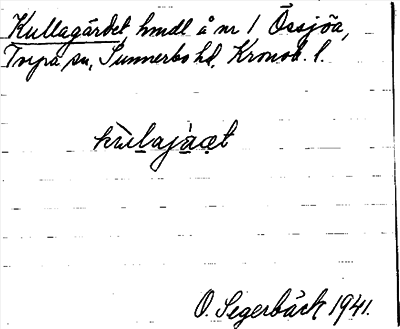 Kullagärdet, hmdl å nr 1 Össjöa,
Torpa sn, Sunnerbo hd, Kronob. l.
O. Segerbäck 1941.